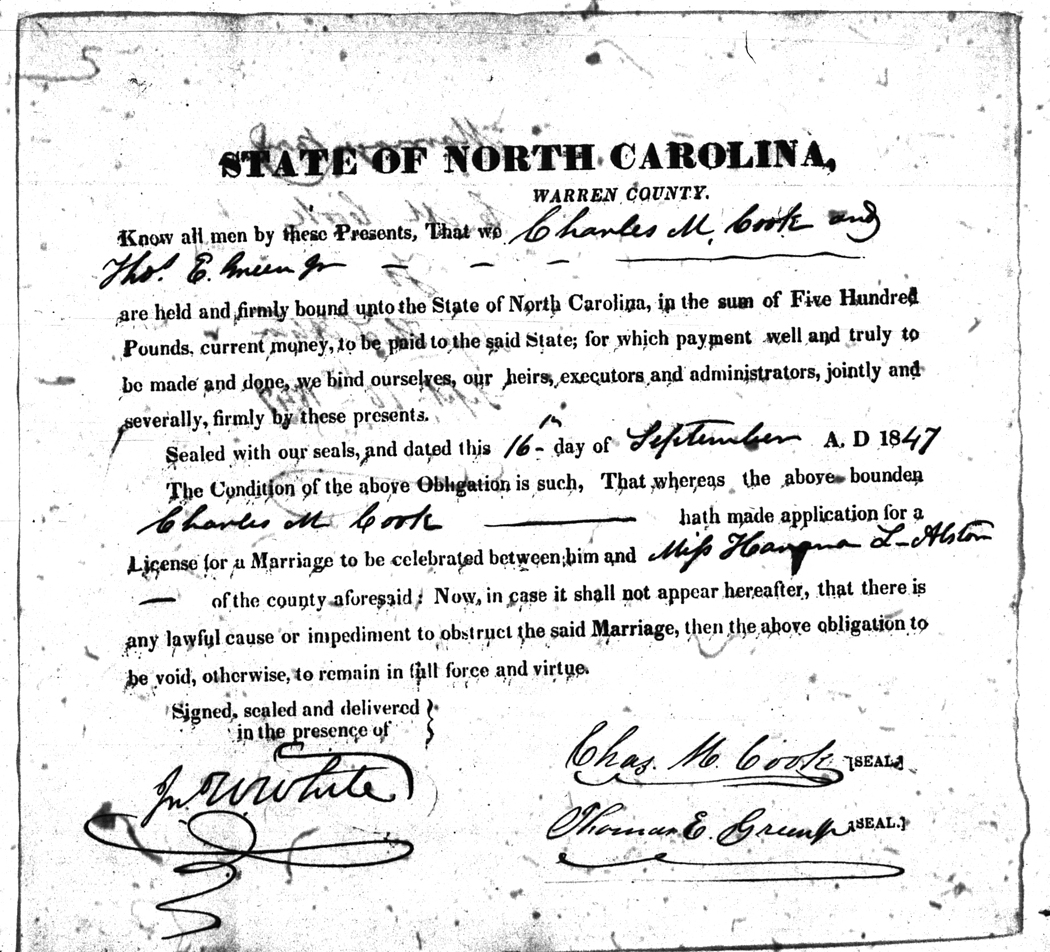 STATE OF NORTH CAROLINA,
WARREN COUNTY.
Know all men by these Presents, That we Charles M. Cook and
Thos. E. Green Jr — — — —
are held and firmly bound unto the State of North Carolina, in the sum of Five Hundred
Pounds, current money, to be paid to the said State; for which payment well and truly to
be made and done, we bind ourselves, our heirs, executors and administrators, jointly and
severally, firmly by these presents.
Sealed with our seals, and dated this 16th day of September A. D 1847
The Condition of the above Obligation is such, That whereas the above bounden
Charles M Cook — hath made application for a
License for a Marriage to be celebrated between him and Miss L. Alston
— of the county aforesaid: Now, in case it shall not appear hereafter, that there is
any lawful cause or impediment to obstruct the said Marriage, then the above obligation to
be void, otherwise, to remain in full force and virtue.
Signed, sealed and delivered }
in the presence of
Chas. M. Cook [SEAL.]
Jn. W White
Thomas E. Green Jr [SEAL.]